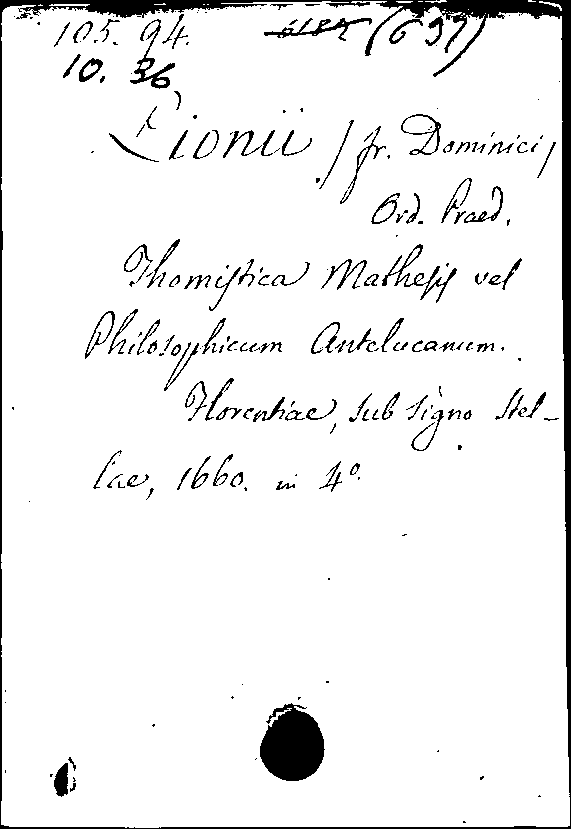 105. 94. (637)
10. 36
Lionii / fr. Dominici /
Ord. Praed.
Thomistica Mathesis vel
Philosophicum Antelucanum.
Florentiae, sub signo Stel-
lae, 1660. in 4°.